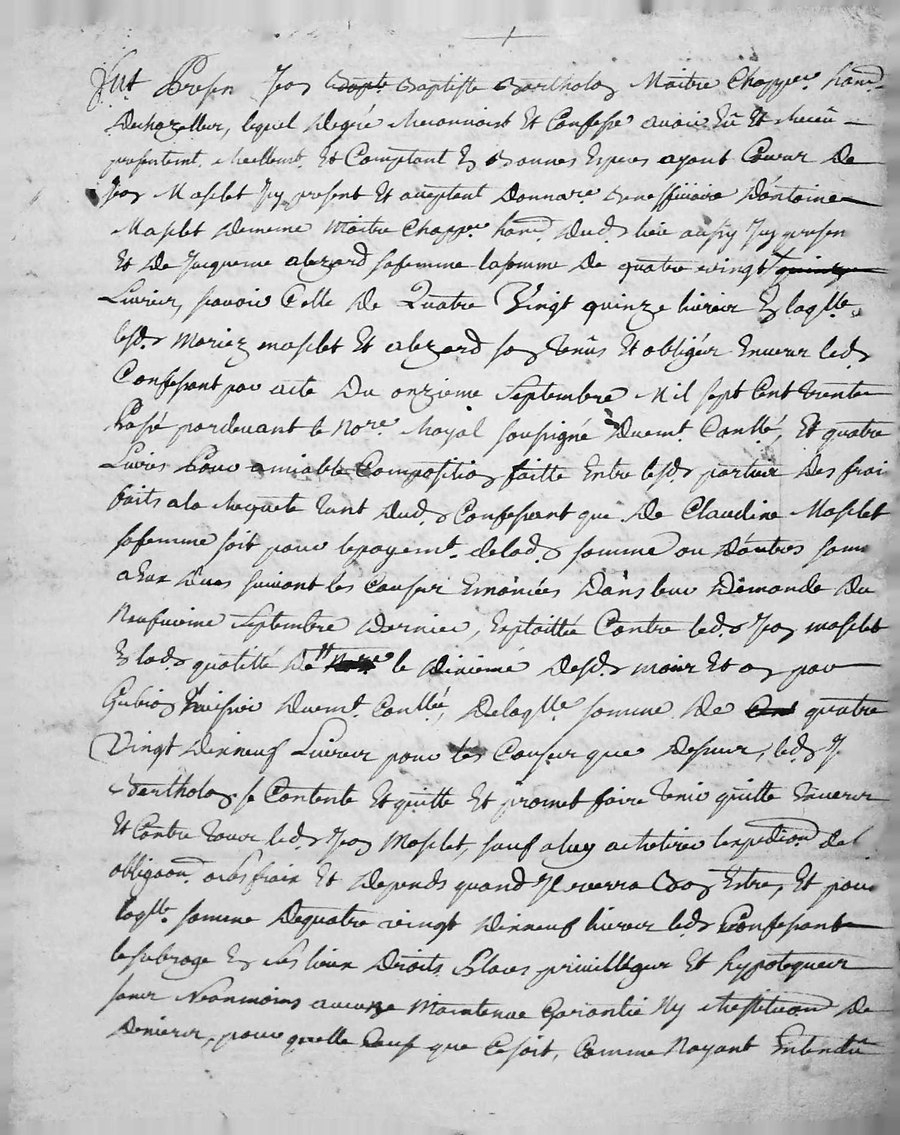 Fut Presen Jean Bapte Baptiste Bartholon Maitre Chappr. hand.
Dechazelleur, lequel Degré Reconnoist Et Confesse avoir Eü Et Receü
presentemt. Reellemt. Et Comptant En Bonnes Especes ayant Cours De
Jean Masclet Jcy present Et aceptant Donnare. Beneffisiaire D'antoine
Masclet Dememe Maitre Chappr. hand. Dud. lieu aussy Jcy presen
Et De Jacqueme abezard safemme lasomme De quatre vingt quinze
Livres, scavoir Celle De Quatre Vingt quinze livres En laqlle.
lesd. Mariez masclet Et abezard son tenûs Et obligés Envers led.
Confessant par acte Du onzieme Septembre Mil sept Cent trente
Passé pardevant le Nore. Royal soussigné Duemt. Conllé, Et quatre
Livres Pour amiable Composition faitte Entre lesd. parties Des frai
faits ala Requete tant Dud. Confessant que De Claudine Masclet
safemme soit pour lepayemt. delad. somme ou D'autres som
a Eux Dues suivant les Causes Enoncées Dans leur Demande Du
Neufvieme Septembre Dernier, Exploittée Contre led. Jean masclet
En lad. qualitté De Nore. le Dixieme Desd. mois Et an par
Gubian huissier Duemt. Conllé, Delaqlle. somme De Cent quatre
Vingt Dixneuf Livres pour les Causes que Dessus, led. Sr.
Bartholon se Contente Et quitte Et promet faire tenir quitte Envers
Et Contre tous led. Jean Masclet, sauf a luy a Retirer lexpedion. del
obligaon. a ses frais Et Depends quand Jl verra Bon Estre, Et pour
laqlle. somme Dequatre vingt Dixneuf livres led. Confessant
lesubroge En ses lieux Droits, places privilleges Et hypoteques
sans Neanmoins aucune Maintenue Garantie Ny Restitution De
Deniers, pour quelle Cause que Cesoit, Comme Nayant Entendû